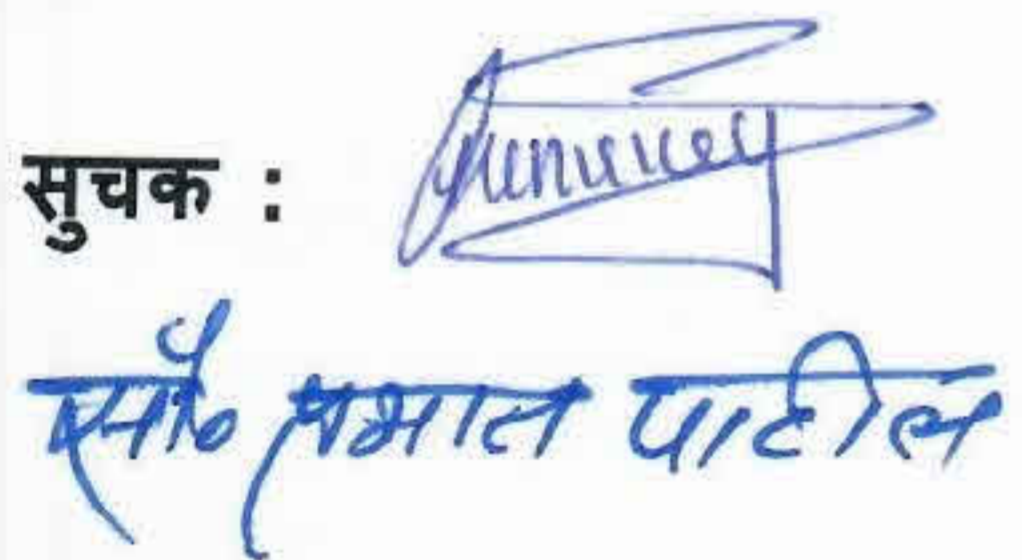 सुचक :
सौ० प्रभात पाटील